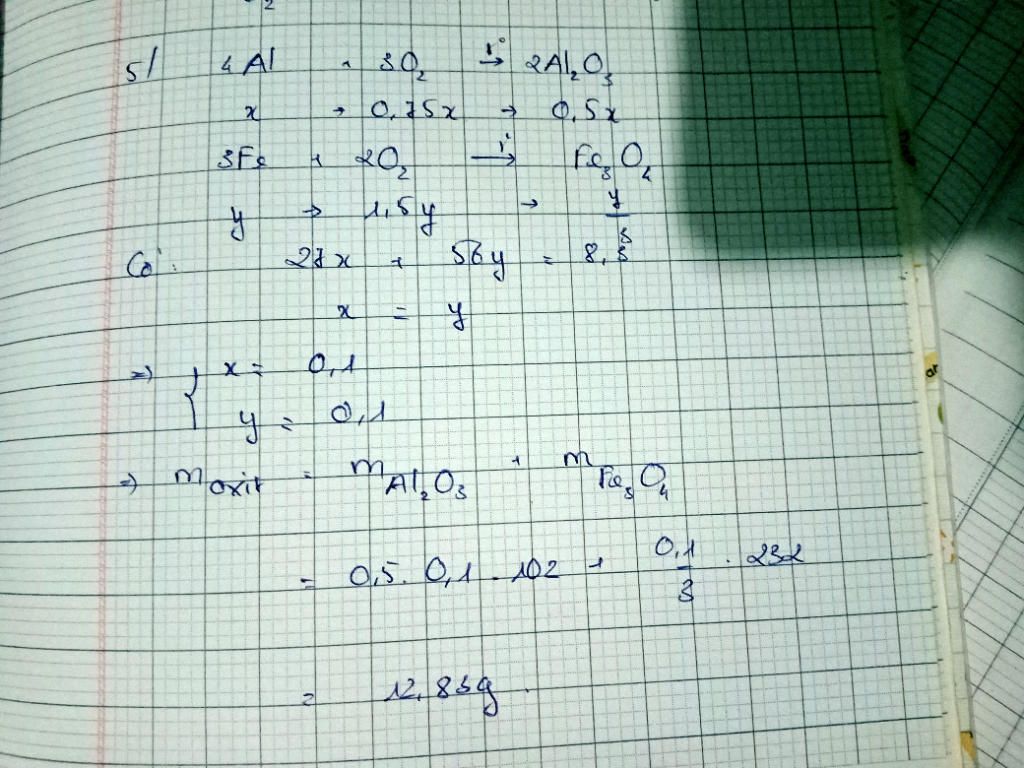 2
5/ 4Al + 3O₂ →(t°) 2Al₂O₃
x → 0,75x → 0,5x
3Fe + 2O₂ →(t°) Fe₃O₄
y → 1,5y → y/3
Có: 27x + 56y = 8,3
x = y
=> { x = 0,1
y = 0,1
=> m oxit = m Al₂O₃ + m Fe₃O₄
= 0,5 . 0,1 . 102 + 0,1/3 . 232
= 12,83g.